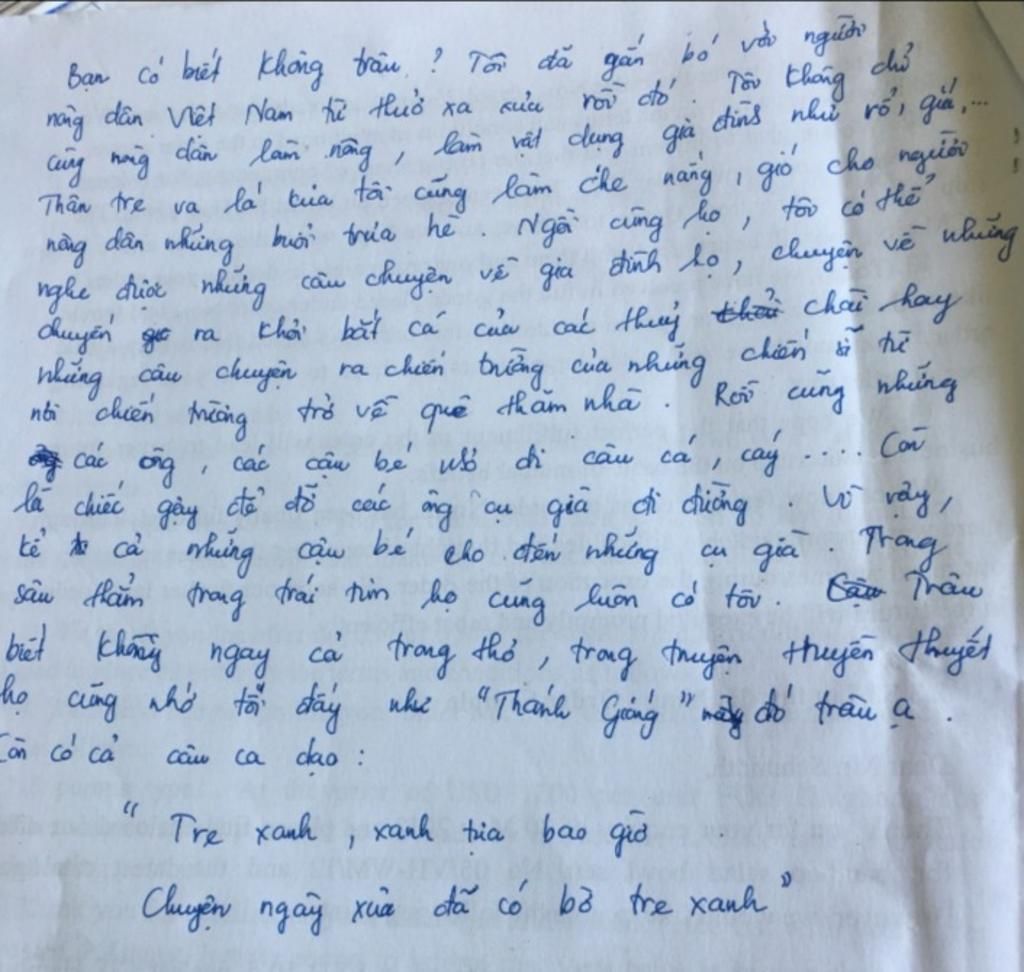 Bạn có biết không trâu ? Tôi đã gắn bó với người
nông dân Việt Nam từ thuở xa xưa rồi đó . Tôi không chỉ
cùng nông dân làm nông , làm vật dụng gia đình như rổ, giá,...
Thân tre va lá của tôi cũng làm che nắng , gió cho người
nông dân những buổi trưa hè . Ngồi cùng họ , tôi có thể
nghe được những câu chuyện về gia đình họ , chuyện về những
chuyến ra khơi bắt cá của các thuỷ chài hay
những câu chuyện ra chiến trường của những chiến sĩ từ
nơi chiến trường trở về quê thăm nhà . Rồi cùng những
các ông , các cậu bé nhỏ đi câu cá , cáy .... Còn
là chiếc gậy để đỡ các ông cụ già đi đường . Vì vậy,
kể cả những cậu be cho đến những cụ già . Trong
sâu thẳm trong trái tim họ cung luôn có tôi . Trâu
biết không ngay cả trong thơ , trong truyện truyền thuyết
họ cũng nhớ tôi đấy như "Thánh Gióng" đó trâu ạ .
Còn có cả câu ca dạo :
"Tre xanh , xanh tủa bao giờ
Chuyện ngày xưa đã có bờ tre xanh"